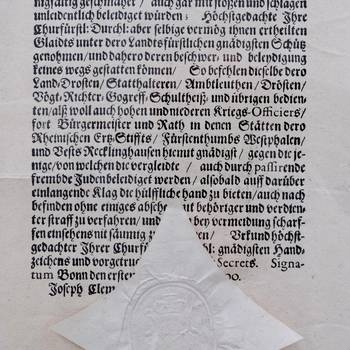 nigfaltig geschmähet / auch gar mit stoßen und schlagen
unleidentlich beleidiget würden; Höchstgedachte Ihre
Churfürstl: Durchl: aber selbige vermög ihnen ertheilten
Glaidts unter dero Landtsfürstlichen gnädigsten Schütz
genohmen / und dahero deren beschwer- und beleydigung
keines wegs gestatten können / So befehlen dieselbe dero
Land-Drosten / Statthalteren / Ambtleuthen / Drösten /
Vögt-Richter / Gogreff / Schultheiß- und übrigen bedien-
ten / alß woll auch hohen und niederen Kriegs-Officiers /
fort Bürgermeister und Rath in denen Stätten dero
Rheinischen Ertz-Stiffts / Fürstenthumbs Westphalen /
und Vests Recklinghausen hiemit gnädigst / gegen die je-
nige / von welchen die vergleidte / auch durch passirende
frembde Juden beleidiget werden / alsobald auff darüber
einlangende Klag die hülffliche hand zu bieten / auch nach
befinden ohne einiges absehen mit behöriger und verdien-
ter straff zu verfahren / und bey vermeidung scharf-
fen einsehens nit säumig zu Urkund höchst-
gedachter Ihrer Churfü hl: gnädigsten Hand-
zeichens und vorgetruc Secrets. Signa-
tum Bonn den ersten 00.
Joseph Clem